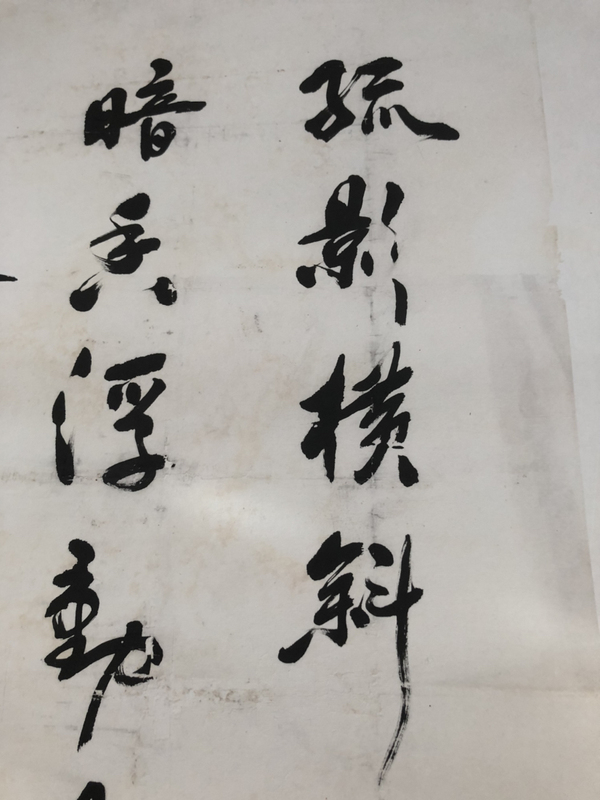 疏影横斜
暗香浮動